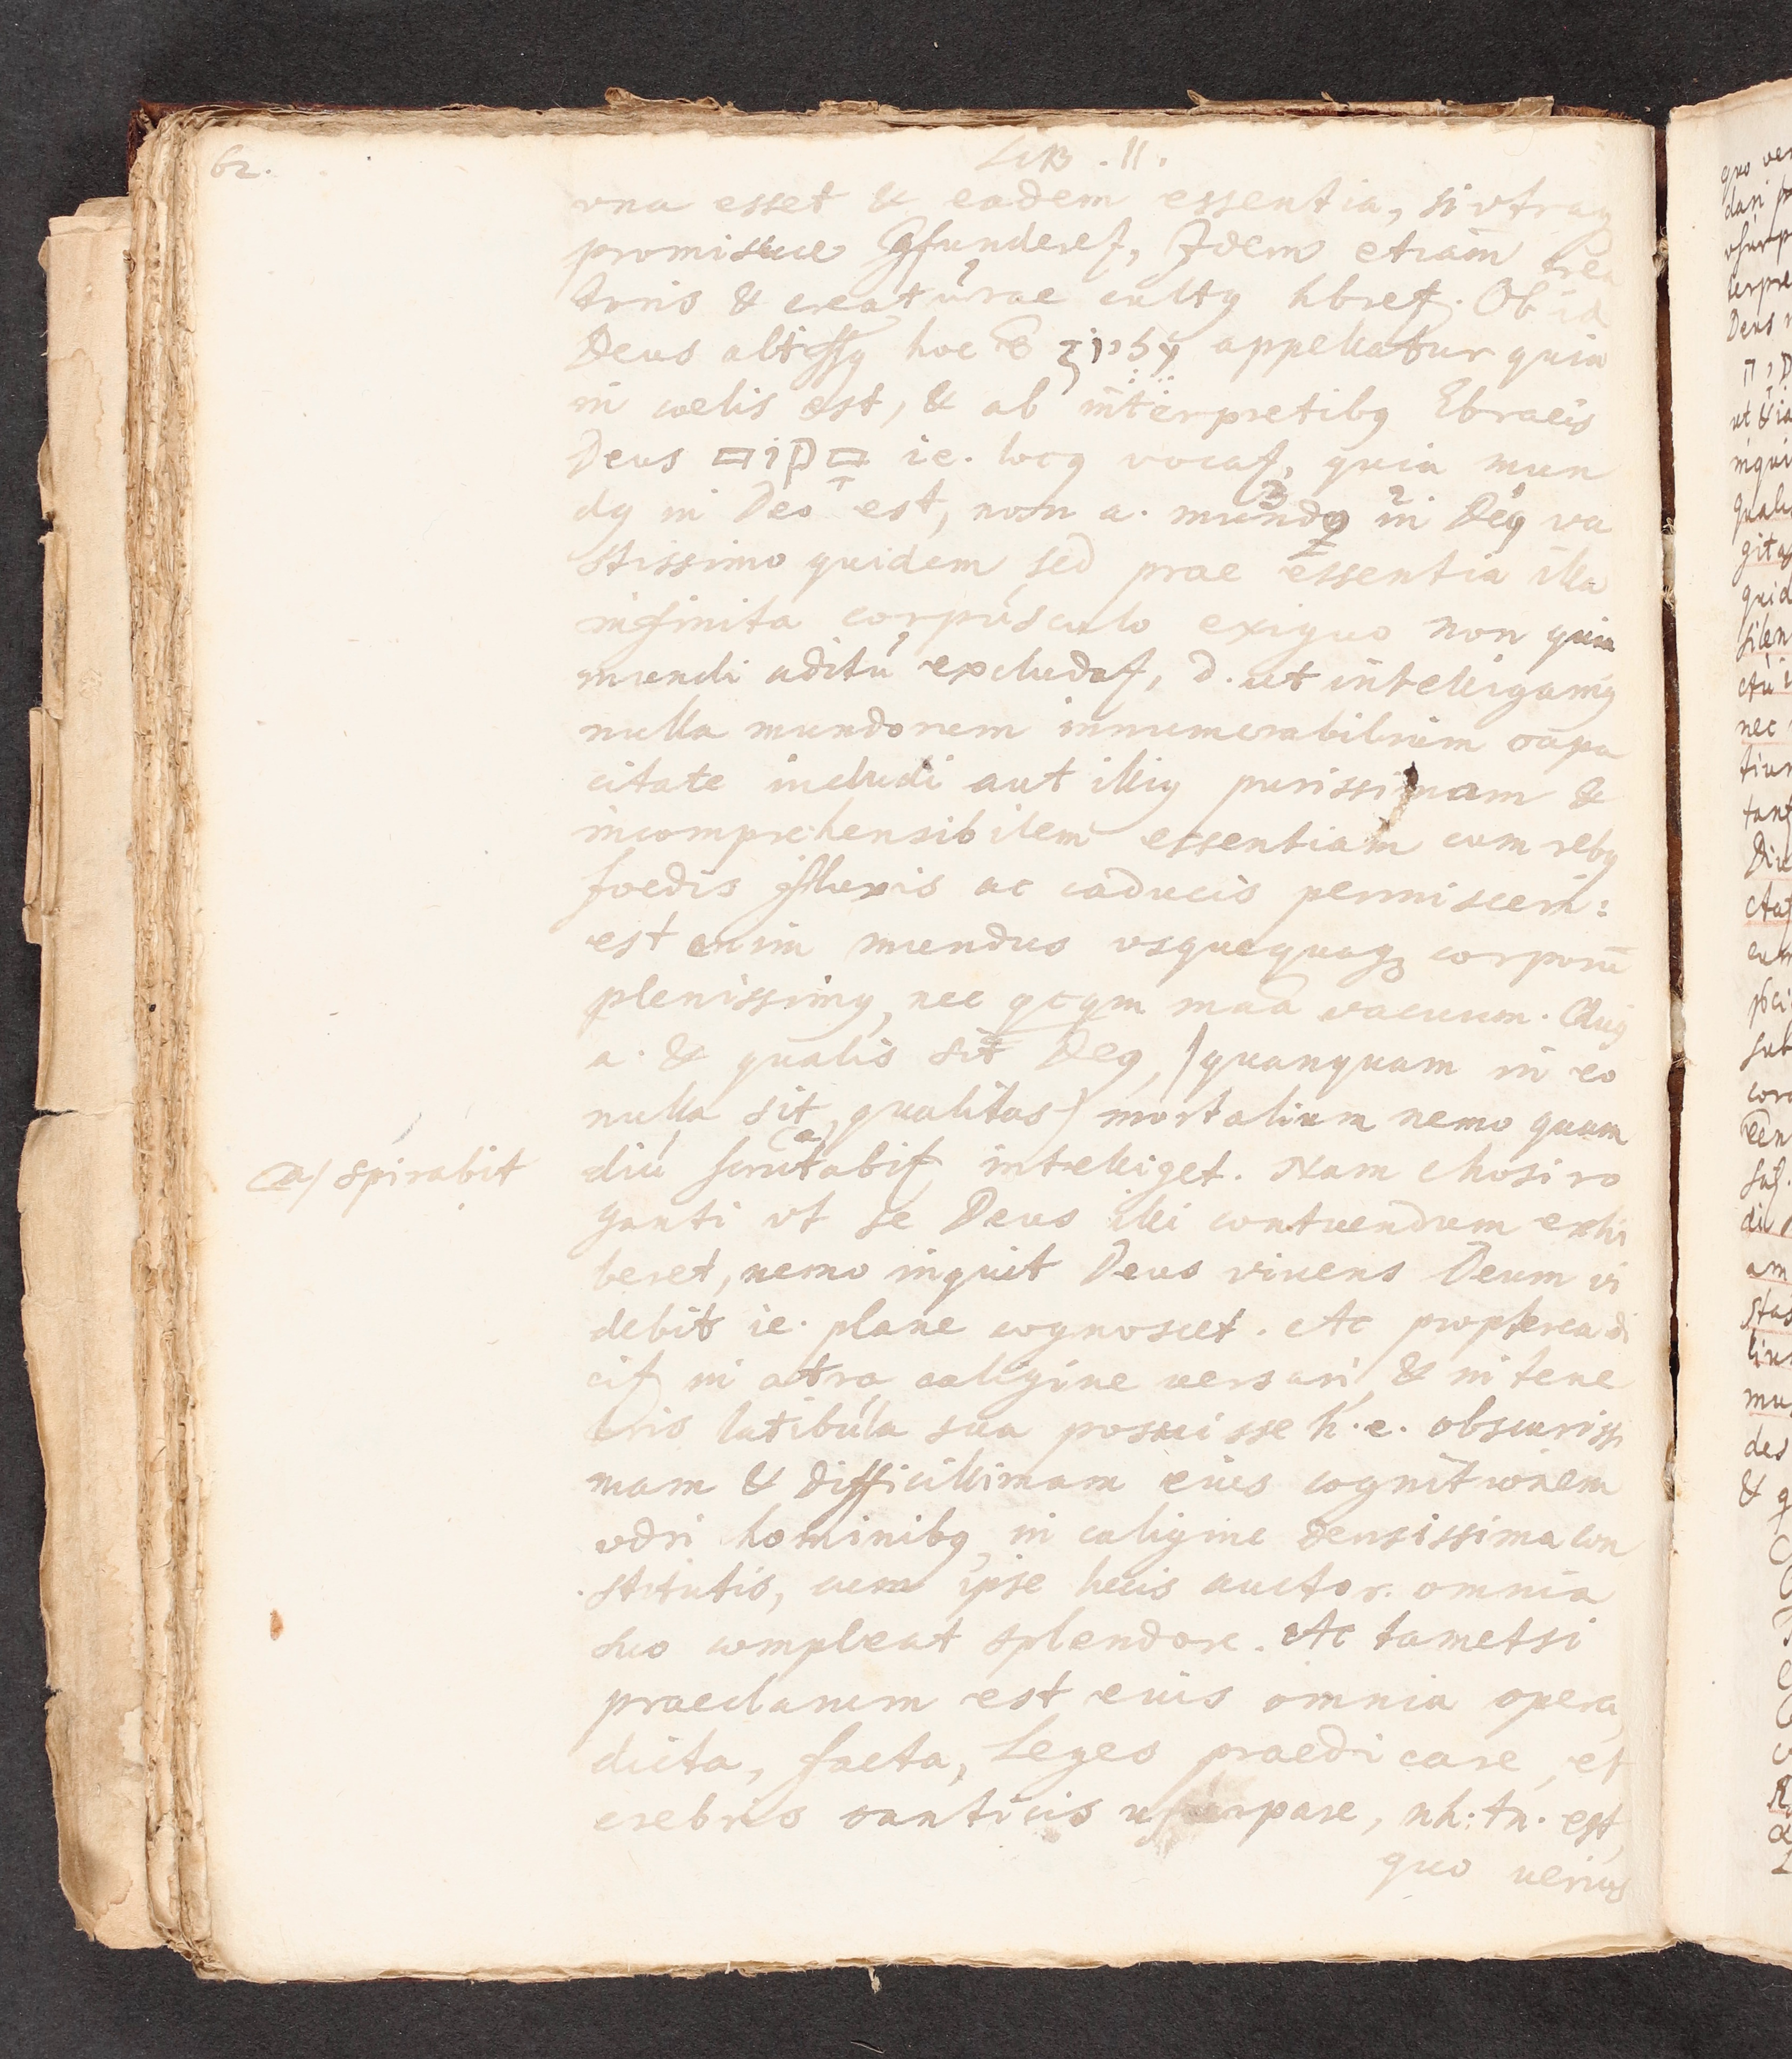 62.
LIB. II.
vna esset & eadem essentia, si vtraq
promiscue Gfunderet, Idem etiam crea
toris & creaturae cultq hbret. Ob id
Deus altissq hoc עליון appellatur quia
in coelis est, & ab interpretibq Ebraeis
Deus מקום ie. locq vocat, quia mun
dq in Deo est, non a. mundq in Deq va
stissimo quidem sed prae essentia illa
infinita corpúsculo exiguo non quia
mundi aditú excludat, d. ut intelligamq
nulla mundorum innumerabilium capa
citate includi aut illiq purissimam &
incomprehensibilem essentiam cum rebq
foedis fluxis ac caducis permisceri:
est enim mundus vsquequaq corporū
plenissimq, nec qcqm vacuum. Quis
a. & qualis sit Deq, /quanquam in eo
nulla sit qualitas/ mortalium nemo quam
diú scrutabit intelliget. Nam Mosi ro
a/ spirabit
ganti vt se Deus illi contuendum exhi
beret, nemo inquit Deus vivens Deum vi
debit ie. plane cognoscet. Ac propterea di
cit in atra caligine versari, & in tene
bris latibúla sua posuisse h. e. obscurissi
mam & difficillimam eius cognitionem
vdri hominibq in caligine densissima con
stitutis, cum ipse lucis auctor omnia
suo compleat splendore. Ac tametsi
praeclarum est eius omnia opera,
dicta, facta, Leges praedicare, et
crebris canticis usurpare, nh. tn. est,
quo verius